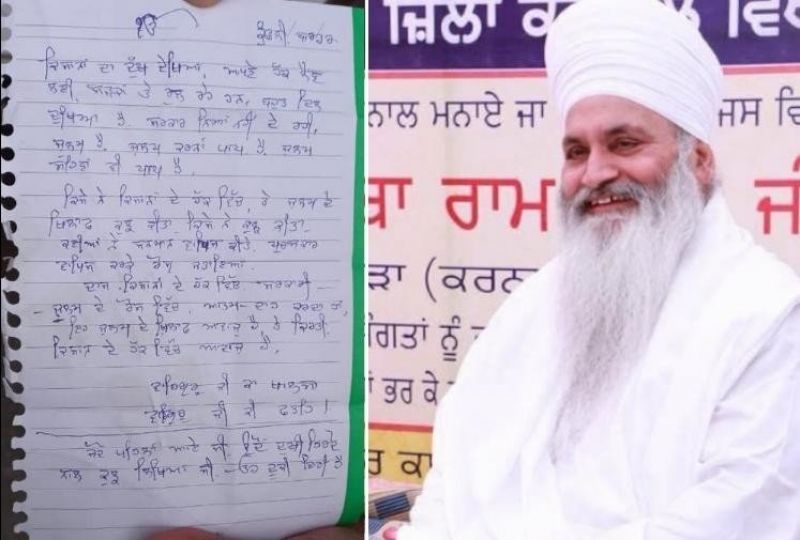 ੴ
ਕਿਸਾਨਾਂ ਦਾ ਦੁੱਖ ਦੇਖਿਆ, ਆਪਣੇ ਹੱਕ ਲੈਣ
ਲਈ, ਸੜਕਾਂ ਤੇ ਰੁਲ ਰਹੇ ਹਨ, ਬਹੁਤ ਦਿਲ
ਦੁਖਿਆ ਹੈ. ਸਰਕਾਰ ਨਿਆਂ ਨਹੀਂ ਦੇ ਰਹੀ,
ਜੁਲਮ ਹੈ. ਜੁਲਮ ਕਰਨਾ ਪਾਪ ਹੈ. ਜੁਲਮ
ਸਹਿਣਾ ਵੀ ਪਾਪ ਹੈ.
ਕਿਸੇ ਨੇ ਕਿਸਾਨਾਂ ਦੇ ਹੱਕ ਵਿੱਚ, ਤੇ ਜੁਲਮ ਦੇ
ਖਿਲਾਫ ਕੁਝ ਕੀਤਾ. ਕਿਸੇ ਨੇ ਕੁਝ ਕੀਤਾ.
ਕਈਆਂ ਨੇ ਸਨਮਾਨ ਵਾਪਿਸ ਕੀਤੇ. ਪੁਰਸਕਾਰ
ਵਾਪਿਸ ਕਰਕੇ ਰੋਸ ਜਤਾਇਆ.
ਦਾਸ ਕਿਸਾਨਾਂ ਦੇ ਹੱਕ ਵਿੱਚ ਸਰਕਾਰੀ -
- ਜੁਲਮ ਦੇ ਰੋਸ ਵਿੱਚ, ਆਤਮ-ਦਾਹ ਕਰਦਾ ਹਾਂ,
ਇਹ ਜੁਲਮ ਦੇ ਖਿਲਾਫ ਆਵਾਜ਼ ਹੈ, ਤੇ ਕਿਰਤੀ
ਕਿਸਾਨ ਦੇ ਹੱਕ ਵਿੱਚ ਆਵਾਜ਼ ਹੈ.
ਵਾਹਿਗੁਰੂ ਜੀ ਕਾ ਖਾਲਸਾ
ਵਾਹਿਗੁਰੂ ਜੀ ਕੀ ਫਤਹਿ।
ਪਹਿਲਾਂ ਆਏ ਸੀ
ਕੁਝ ਲਿਖਿਆ ਸੀ
ਜ਼ਿਲਾ
ਨਾਲ ਮਨਾਏ ਜਾ
ਜਸ ਵਿ
ਰਾਮ
ੜਾ (ਕਰਨਾ
ਸੰਗਤਾਂ ਨੂੰ
ਭਰ ਕੇ